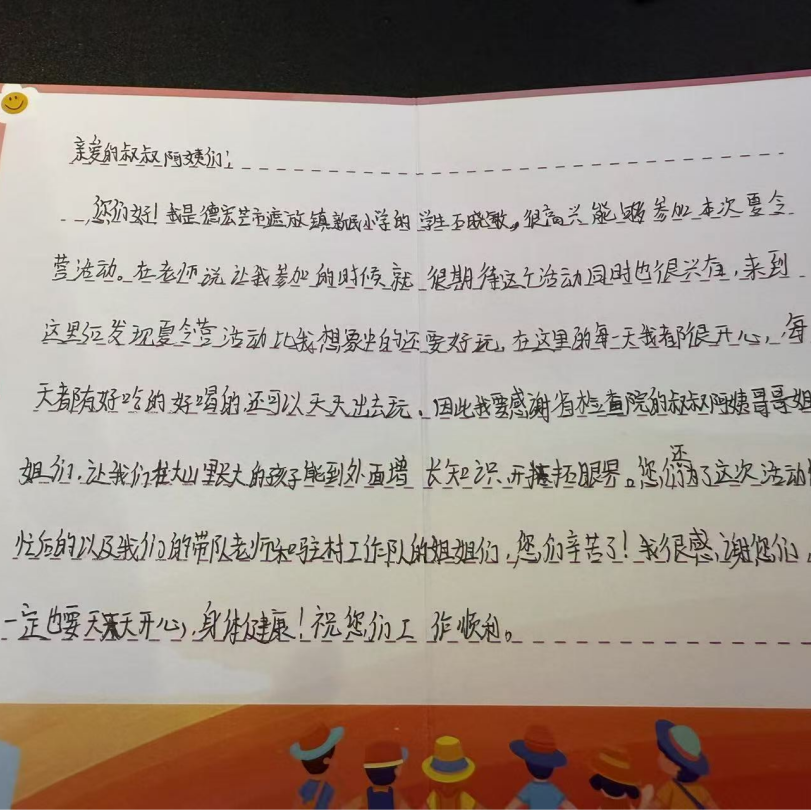 亲爱的叔叔阿姨们：
您们好！我是德宏芒市遮放镇新民小学的学生王晓敏。很高兴能够参加本次夏令
营活动。在老师说让我参加的时候就很期待这个活动同时也很兴奋，来到
这里后发现夏令营活动比我想象中的还要好玩，在这里的每一天我都很开心，每
天都有好吃的好喝的还可以天天出去玩，因此我要感谢省检查院的叔叔阿姨哥哥姐
姐们，让我们在大山里长大的孩子能到外面增长知识，开拓眼界。您们还有了这次活动
忙后的以及我们的带队老师和驻村工作队的姐姐们，您们辛苦了！我很感谢您们，
一定也要天天开心，身体健康！祝您们工作顺利。